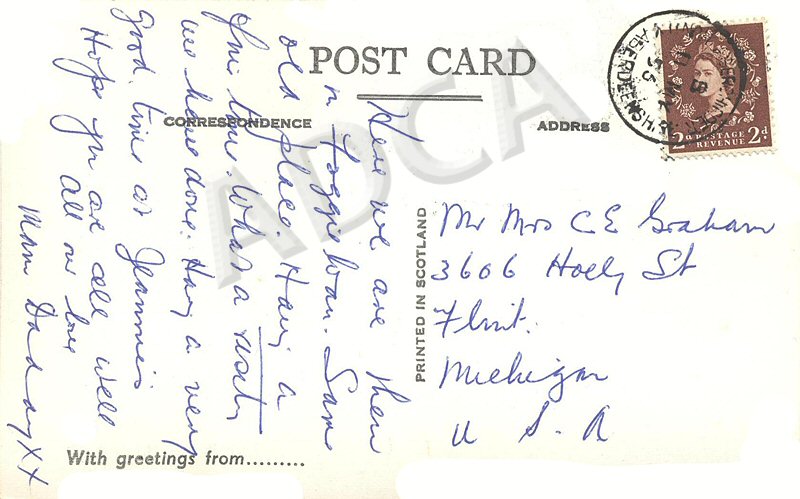 POST CARD
CORRESPONDENCE
ADDRESS
Here we are then
in Foggieloan. Same
old place. Having a
fine time. What a visiting
we have done. Having a very
good time at Jeannie's
Hope you are all well
all our love
Mam Dad XX
Mr Mrs C E Graham
3606 Holly St
Flint.
Michigan
U S. A
PRINTED IN SCOTLAND
With greetings from.........
2d POSTAGE 2d
REVENUE
ABERDEENSHIRE
ADCA